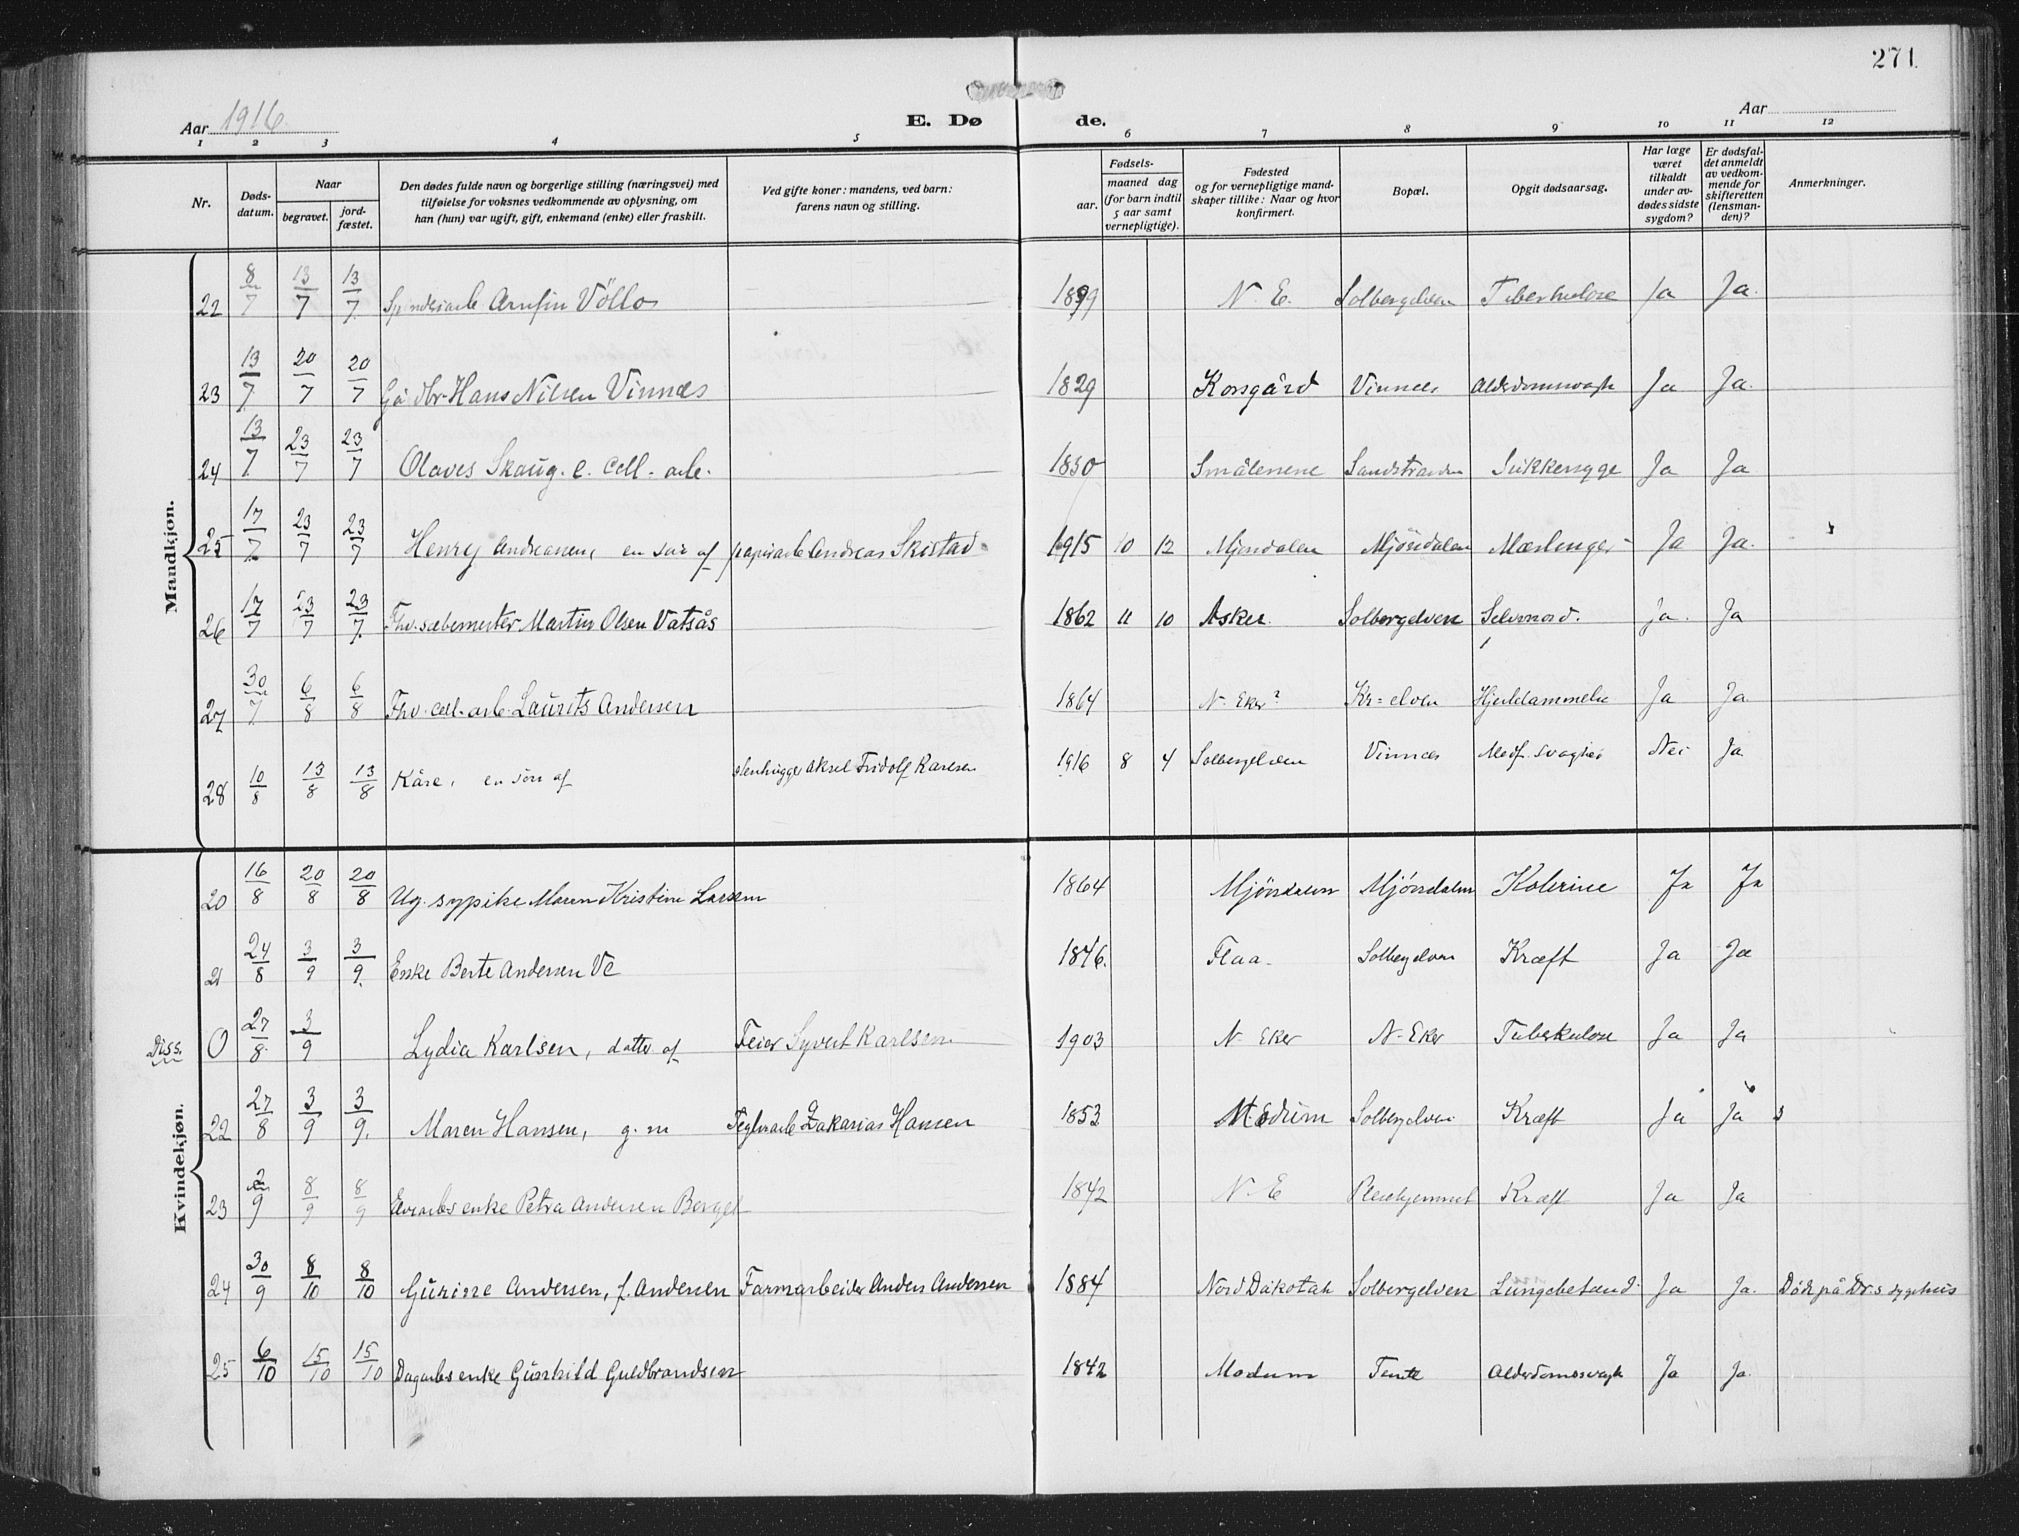 271.
Aar 1916
E. Dø de.
Aar
1 2 3 4 5 6 7 8 9 10 11 12
Nr.
Døds-
datum.
Naar
begravet.
jord-
fæstet.
Den dødes fulde navn og borgerlige stilling (næringsvei) med
tilføielse for voksnes vedkommende av oplysning, om
han (hun) var ugift, gift, enkemand (enke) eller fraskilt.
Ved gifte koner: mandens, ved barn:
farens navn og stilling.
Fødsels-
aar.
maaned dag
(for barn indtil
5 aar samt
vernepligtige).
Fødested
og for vernepligtige mand-
skaper tillike: Naar og hvor
konfirmert.
Bopæl.
Opgit dødsaarsag.
Har læge
været
tilkaldt
under av-
dødes sidste
sygdom?
Er dødsfal-
det anmeldt
av vedkom-
mende for
skifteretten
(lensman-
den)?
Anmerkninger.
Mandkjøn.
22 8/7 13/7 13/7 Arnfin Völlo 1899 N. E. Solbergelven Tuberkulose Ja Ja.
23 13/7 20/7 20/7 Gådbr. Hans Nilsen Vinnæs 1829 Korsgård Vinnes Alderdomsvagh Ja Ja.
24 13/7 23/7 23/7 Olaves Skaug. e. Cell. arb. 1850 Smålenene Sandstranden Sukkersyge Ja Ja
25 17/7 23/7 23/7 Henry Andreasen, en sön af papirarb Andreas Skistad 1915 10 12 Mjøndalen Mjöndalen Mæslinger Ja Ja.
26 17/7 23/7 23/7 Fhv. sæbemester Martin Olsen Vatsås 1862 11 10 Asker. Solbergelven Selvmord. ja. Ja
27 30/7 6/8 6/8 Fhv. cell. arb. Laurits Andersen 1864 N. Eker? Kr=elven Hjertelammelse Ja Ja
28 10/8 13/8 13/8 Kåre, en sön af stenhugger Aksel Fridolf Karlsen 1916 8 4 Solbergelven Vinnæs Medf. svaghed Nei Ja
Kvindekjøn.
20 16/8 20/8 20/8 Ug. sypike Maren Kristine Larsen 1864 Mjöndalen Mjöndalen Kolerine Ja Ja
21 24/8 3/9 3/9. Enke Berte Andersen Ve 1846. Flaa. Solbergelven Kræft Ja Ja
Diss. 0 27/8 3/9 Lydia Karlsen, datter af Feier Syvert Karlsen 1903 N. Eker N. Eker Tuberkulose Ja Ja
22 27/8 3/9 3/9. Maren Hansen, g. m Teglverarb Zakarias Hansen 1853 Modum Solbergelven Kræft Ja Ja
23 2/9 8/9 8/9 enke Petra Andersen Berget 1842 N. E Pleiehjemmet Kræft Ja Ja
24 30/9 8/10 8/10 Gurine Andersen, f. Andersen Farmarbeider Anders Andersen 1884 Nord Dakotah Solbergelven Lungebetænd. Ja Ja. Död på Dr.s sygehus
25 6/10 15/10 15/10 Dagarbs enke Gunhild Guldbrandsen 1842 Modum Tente Alderdomssvagh Ja Ja.